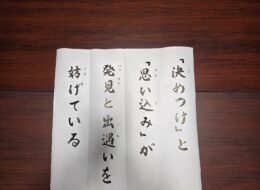 「決めつけ」と
「思い込み」が
発見と出遇いを
妨げている